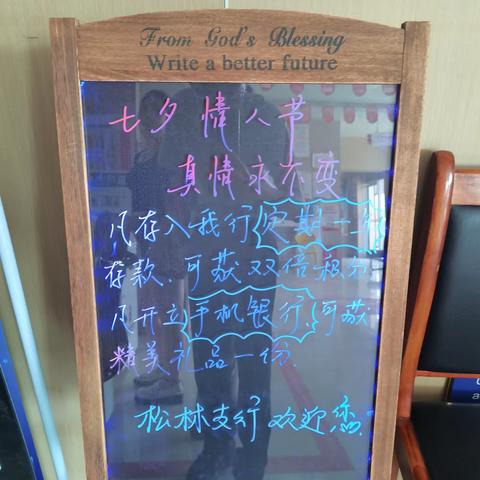 From God's Blessing
Write a better future
七夕情人节
真情永不变
凡存入我行定期一年
存款.可获双倍积分
凡开立手机银行.可获
精美礼品一份.
松林支行欢迎您.